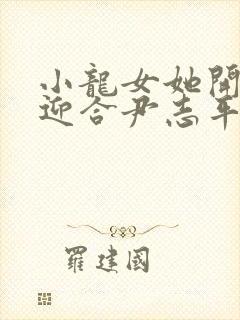 小龍女她開
迎合尹志平
羅建國